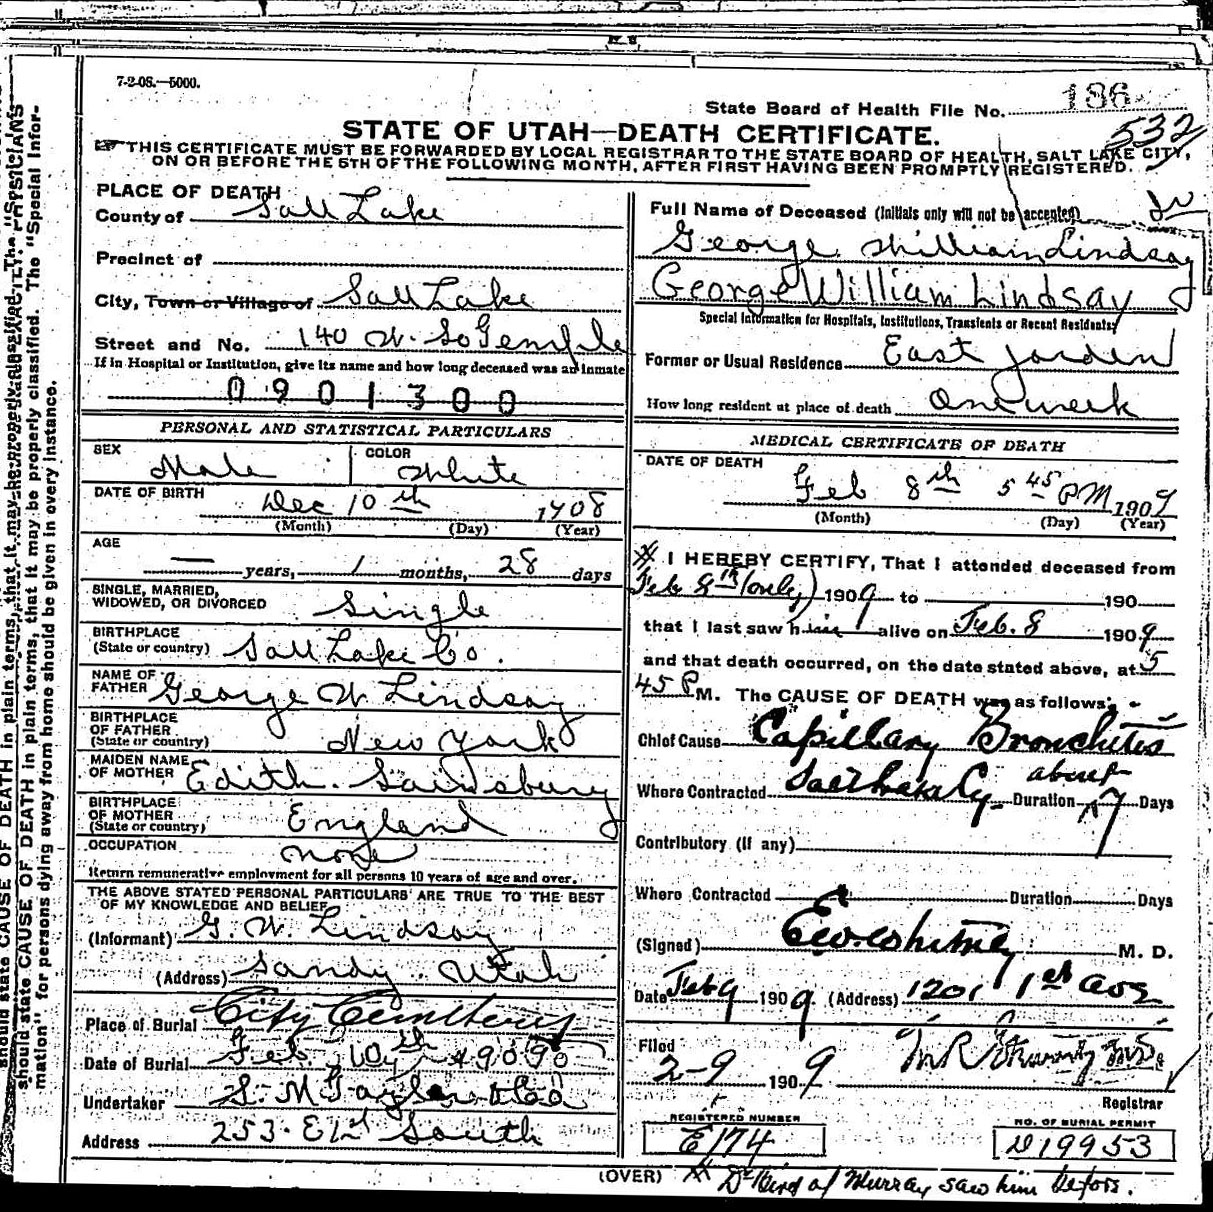 7-2-08.—5000.
State Board of Health File No. 186
532
STATE OF UTAH—DEATH CERTIFICATE.
THIS CERTIFICATE MUST BE FORWARDED BY LOCAL REGISTRAR TO THE STATE BOARD OF HEALTH, SALT LAKE CITY,
ON OR BEFORE THE 5TH OF THE FOLLOWING MONTH, AFTER FIRST HAVING BEEN PROMPTLY REGISTERED.
PLACE OF DEATH
County of Salt Lake
Precinct of
City, Town or Village of Salt Lake
Street and No. 140 W. So Temple
If in Hospital or Institution, give its name and how long deceased was an inmate
0901300
PERSONAL AND STATISTICAL PARTICULARS
SEX Male COLOR White
DATE OF BIRTH Dec 10th 1908
(Month) (Day) (Year)
AGE
— years, 1 months, 28 days
SINGLE, MARRIED,
WIDOWED, OR DIVORCED Single
BIRTHPLACE
(State or country) Salt Lake Co.
NAME OF
FATHER George W Lindsay
BIRTHPLACE
OF FATHER
(State or country) New York
MAIDEN NAME
OF MOTHER Edith Sainsbury
BIRTHPLACE
OF MOTHER
(State or country) England
OCCUPATION none
Return remunerative employment for all persons 10 years of age and over.
THE ABOVE STATED PERSONAL PARTICULARS ARE TRUE TO THE BEST
OF MY KNOWLEDGE AND BELIEF
(Informant) G. W. Lindsay
(Address) Sandy Utah
Place of Burial City Cemetery
Date of Burial Feb 10th 1909
Undertaker S. M Taylor
Address 253 E 1st South
Full Name of Deceased (Initials only will not be accepted)
George William Lindsay
George William Lindsay
Special Information for Hospitals, Institutions, Transients or Recent Residents:
Former or Usual Residence East Jorden
How long resident at place of death One week
MEDICAL CERTIFICATE OF DEATH
DATE OF DEATH
Feb 8th 5 45 PM 1909
(Month) (Day) (Year)
I HEREBY CERTIFY, That I attended deceased from
Feb 8th (only) 1909 to 190
that I last saw him alive on Feb. 8 1909
and that death occurred, on the date stated above, at 5
45 P M. The CAUSE OF DEATH was as follows:
Chief Cause Capillary Bronchitis
Where Contracted Salt Lake Cy Duration about 7 Days
Contributory (if any)
Where Contracted Duration Days
(Signed) M. D.
Date Feb 9 1909. (Address) 1201 1st Ave
Filed
2-9 1909
Registrar
REGISTERED NUMBER
E174
NO. OF BURIAL PERMIT
D19953
(OVER) Dr Bird of Murray saw him before.